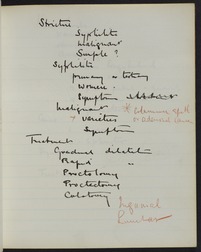 Stricture
Syphilitic
Malignant
Simple ?
Syphilitic
primary or tertiary
Women.
Symptoms
Malignant
Varieties
Symptoms
Treatment
Gradual dilatation
Rapid "
Proctotomy
Proctectomy
Colotomy
Inguinal
Lumbar